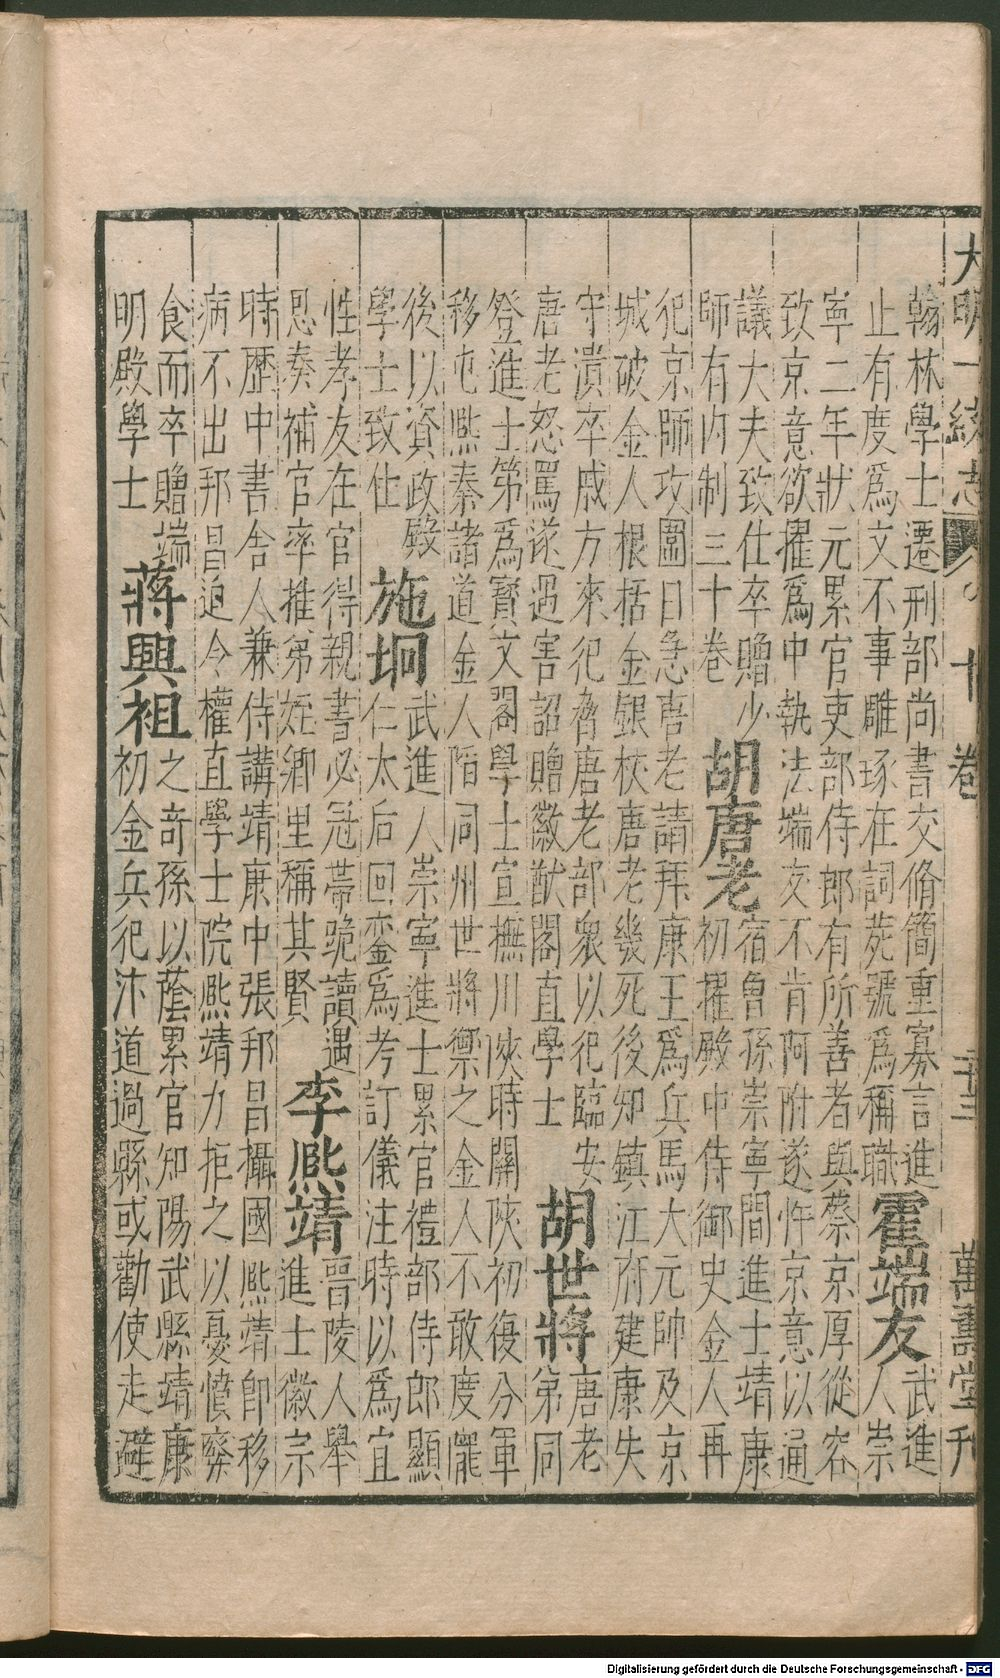 大明一統志 十 卷 萬壽堂刊
翰林學士遷刑部尚書交脩簡重寡言進
止有度爲文不事雕琢在詞苑號爲稱職
霍端友
武進
人崇
寧二年狀元累官吏部侍郎有所善者與蔡京厚從容
致京意欲擢爲中執法端友不肯阿附遂忤京意以通
議大夫致仕卒贈少
師有内制三十卷
胡唐老
宿曾孫崇寧間進士靖康
初擢殿中侍御史金人再
犯京師攻圍日急唐老請拜康王爲兵馬大元帥及京
城破金人根括金銀梜唐老幾死後知鎮江府建康失
守潰卒戚方來犯脅唐老部衆以犯臨安
唐老怒罵遂遇害詔贈徽猷閣直學士
胡世將
唐老
第同
登進士第爲寳文閣學士宣撫川陝時關陝初復分軍
移屯熙秦諸道金人陷同州世將禦之金人不敢度罷
後以資政殿
學士致仕
施坰
武進人崇寧進士累官禮部侍郎顯
仁太后回鑾爲考訂儀注時以爲宜
性孝友在官得親書必冠帶跪讀遇
恩奏補官率推弟姪鄉里稱其賢
李熙靖
晉陵人舉
進士徽宗
時歷中書舍人兼侍講靖康中張邦昌攝國熙靖卽移
病不出邦昌迫令權直學士院熙靖力拒之以憂憤廢
食而卒贈端
明殿學士
蔣興祖
之奇孫以蔭累官知陽武縣靖康
初金兵犯汴道過縣或勸使走避
Digitalisierung gefördert durch die Deutsche Forschungsgemeinschaft - DFG